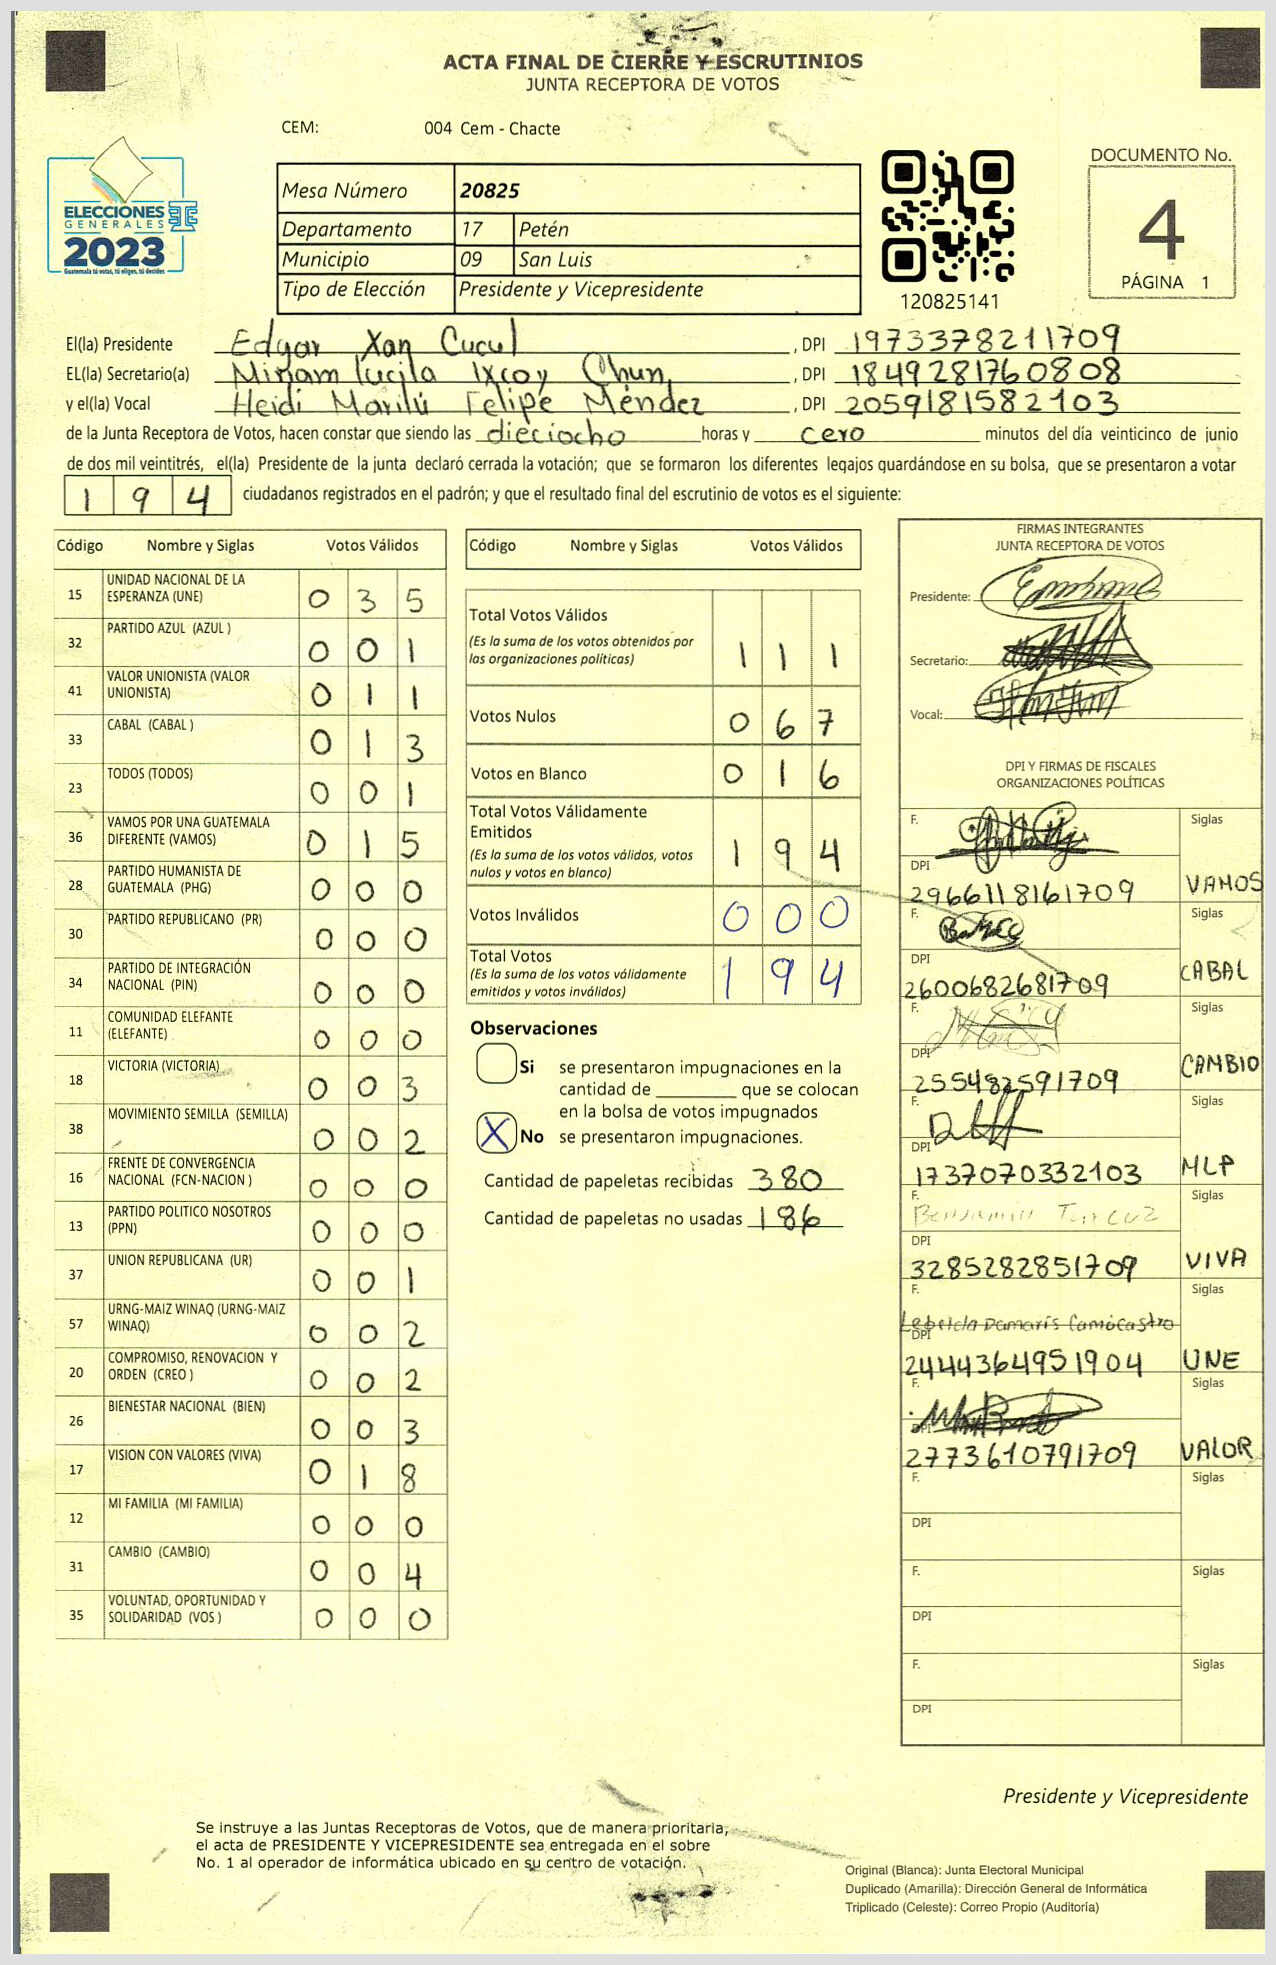 ACTA FINAL DE CIERRE Y ESCRUTINIOS
JUNTA RECEPTORA DE VOTOS
CEM: 004 Cem - Chacte
ELECCIONES
GENERALES
2023
Guatemala tú votas, tú eliges, tú decides
Mesa Número 20825
Departamento 17 Petén
Municipio 09 San Luis
Tipo de Elección Presidente y Vicepresidente
120825141
DOCUMENTO No.
4
PÁGINA 1
El(la) Presidente Edgar Xan Cucul, DPI 1973378211709
EL(la) Secretario(a) Miriam lucila Ixcoy Chun, DPI 1849281760808
y el(la) Vocal Heidi Marilú Felipe Méndez, DPI 2059181582103
de la Junta Receptora de Votos, hacen constar que siendo las dieciocho horas y cero minutos del día veinticinco de junio
de dos mil veintitrés, el(la) Presidente de la junta declaró cerrada la votación; que se formaron los diferentes legajos guardándose en su bolsa, que se presentaron a votar
194 ciudadanos registrados en el padrón; y que el resultado final del escrutinio de votos es el siguiente:
Código Nombre y Siglas Votos Válidos
15 UNIDAD NACIONAL DE LA ESPERANZA (UNE) 0 3 5
32 PARTIDO AZUL (AZUL ) 0 0 1
41 VALOR UNIONISTA (VALOR UNIONISTA) 0 1 1
33 CABAL (CABAL ) 0 1 3
23 TODOS (TODOS) 0 0 1
36 VAMOS POR UNA GUATEMALA DIFERENTE (VAMOS) 0 1 5
28 PARTIDO HUMANISTA DE GUATEMALA (PHG) 0 0 0
30 PARTIDO REPUBLICANO (PR) 0 0 0
34 PARTIDO DE INTEGRACIÓN NACIONAL (PIN) 0 0 0
11 COMUNIDAD ELEFANTE (ELEFANTE) 0 0 0
18 VICTORIA (VICTORIA) 0 0 3
38 MOVIMIENTO SEMILLA (SEMILLA) 0 0 2
16 FRENTE DE CONVERGENCIA NACIONAL (FCN-NACION ) 0 0 0
13 PARTIDO POLITICO NOSOTROS (PPN) 0 0 0
37 UNION REPUBLICANA (UR) 0 0 1
57 URNG-MAIZ WINAQ (URNG-MAIZ WINAQ) 0 0 2
20 COMPROMISO, RENOVACION Y ORDEN (CREO ) 0 0 2
26 BIENESTAR NACIONAL (BIEN) 0 0 3
17 VISION CON VALORES (VIVA) 0 1 8
12 MI FAMILIA (MI FAMILIA) 0 0 0
31 CAMBIO (CAMBIO) 0 0 4
35 VOLUNTAD, OPORTUNIDAD Y SOLIDARIDAD (VOS ) 0 0 0
Código Nombre y Siglas Votos Válidos
Total Votos Válidos 1 1 1
(Es la suma de los votos obtenidos por
las organizaciones políticas)
Votos Nulos 0 6 7
Votos en Blanco 0 1 6
Total Votos Válidamente
Emitidos 1 9 4
(Es la suma de los votos válidos, votos
nulos y votos en blanco)
Votos Inválidos 0 0 0
Total Votos 1 9 4
(Es la suma de los votos válidamente
emitidos y votos inválidos)
Observaciones
Si se presentaron impugnaciones en la
cantidad de ________ que se colocan
en la bolsa de votos impugnados
X No se presentaron impugnaciones.
Cantidad de papeletas recibidas 380
Cantidad de papeletas no usadas 186
FIRMAS INTEGRANTES
JUNTA RECEPTORA DE VOTOS
Presidente:
Secretario:
Vocal:
DPI Y FIRMAS DE FISCALES
ORGANIZACIONES POLÍTICAS
F. Siglas
DPI
2966118161709 VAMOS
F. Siglas
DPI
2600682681709 CABAL
F. Siglas
DPI
255482591709 CAMBIO
F. Siglas
DPI
1737070332103 MLP
F. Siglas
Benjamin
DPI
3285282851709 VIVA
F. Siglas
Damaris
DPI
2444364951904 UNE
F. Siglas
DPI
2773610791709 VALOR
F. Siglas
DPI
F. Siglas
DPI
F. Siglas
DPI
Presidente y Vicepresidente
Se instruye a las Juntas Receptoras de Votos, que de manera prioritaria,
el acta de PRESIDENTE Y VICEPRESIDENTE sea entregada en el sobre
No. 1 al operador de informática ubicado en su centro de votación.
Original (Blanca): Junta Electoral Municipal
Duplicado (Amarilla): Dirección General de Informática
Triplicado (Celeste): Correo Propio (Auditoría)